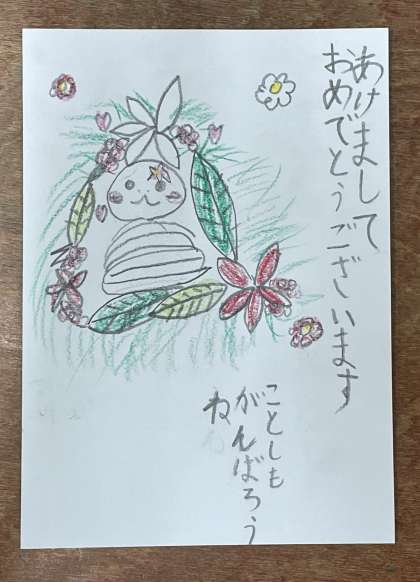 あけまして
おめでとうございます
ことしも
がんばろう
ね